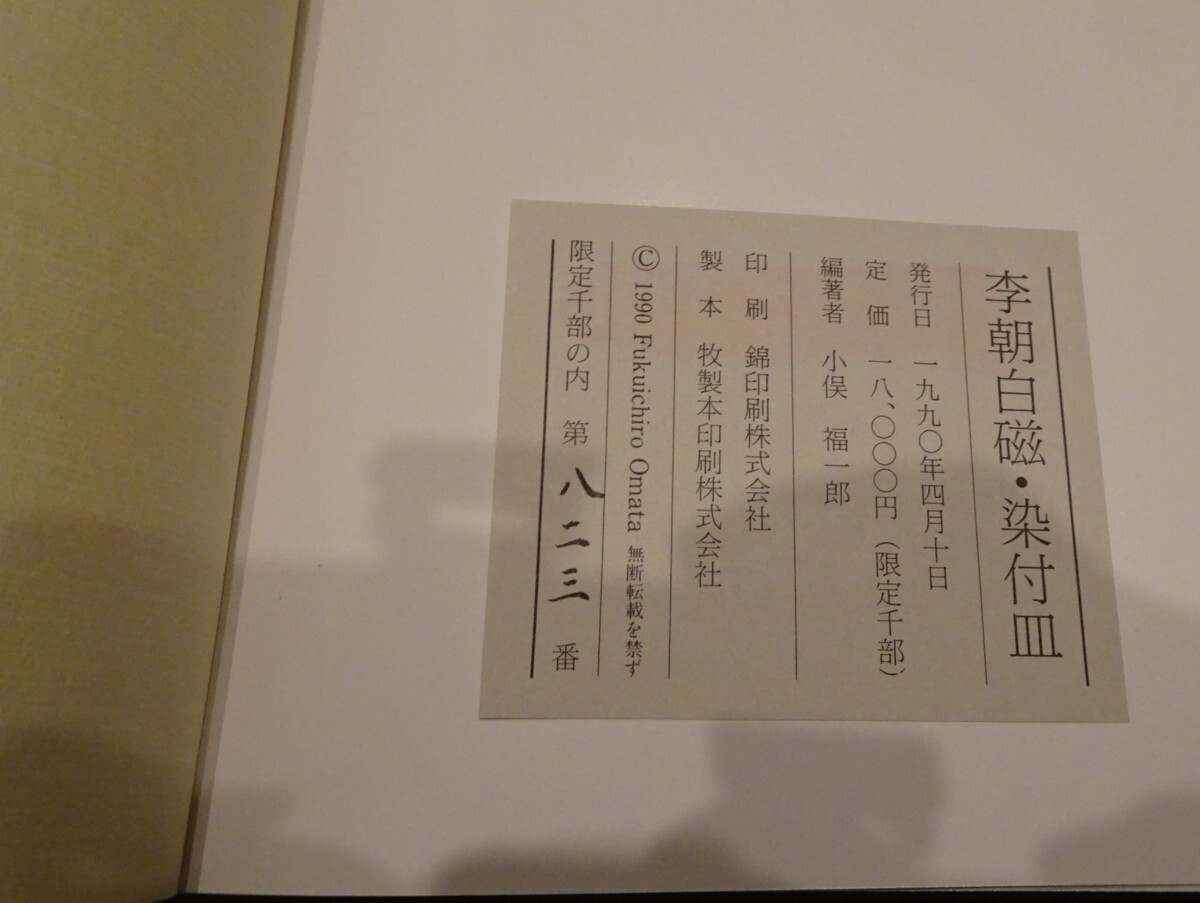 李朝白磁・染付皿
発行日 一九九〇年四月十日
定価 一八、〇〇〇円（限定千部）
編著者 小俣 福一郎
印刷 錦印刷株式会社
製本 牧製本印刷株式会社
© 1990 Fukuichiro Omata 無断転載を禁ず
限定千部の内 第 八二三 番